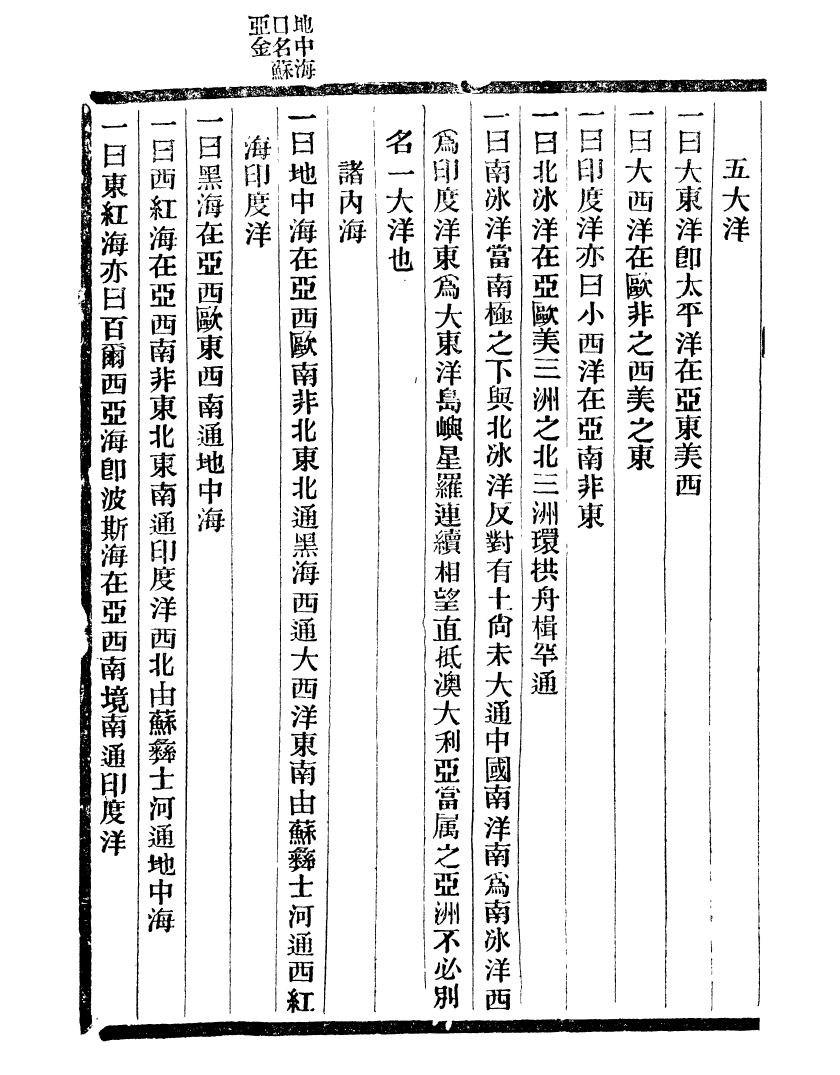 地中海
口名蘇
亞金
五大洋
一曰大東洋卽太平洋在亞東美西
一曰大西洋在歐非之西美之東
一曰印度洋亦曰小西洋在亞南非東
一曰北冰洋在亞歐美三洲之北三洲環拱舟楫罕通
一曰南冰洋當南極之下與北冰洋反對有土尙未大通中國南洋南爲南冰洋西
爲印度洋東爲大東洋島嶼星羅連續相望直抵澳大利亞當属之亞洲不必別
名一大洋也
諸內海
一曰地中海在亞西歐南非北東北通黑海西通大西洋東南由蘇彞士河通西紅
海印度洋
一曰黑海在亞西歐東西南通地中海
一曰西紅海在亞西南非東北東南通印度洋西北由蘇彞士河通地中海
一曰東紅海亦曰百爾西亞海卽波斯海在亞西南境南通印度洋